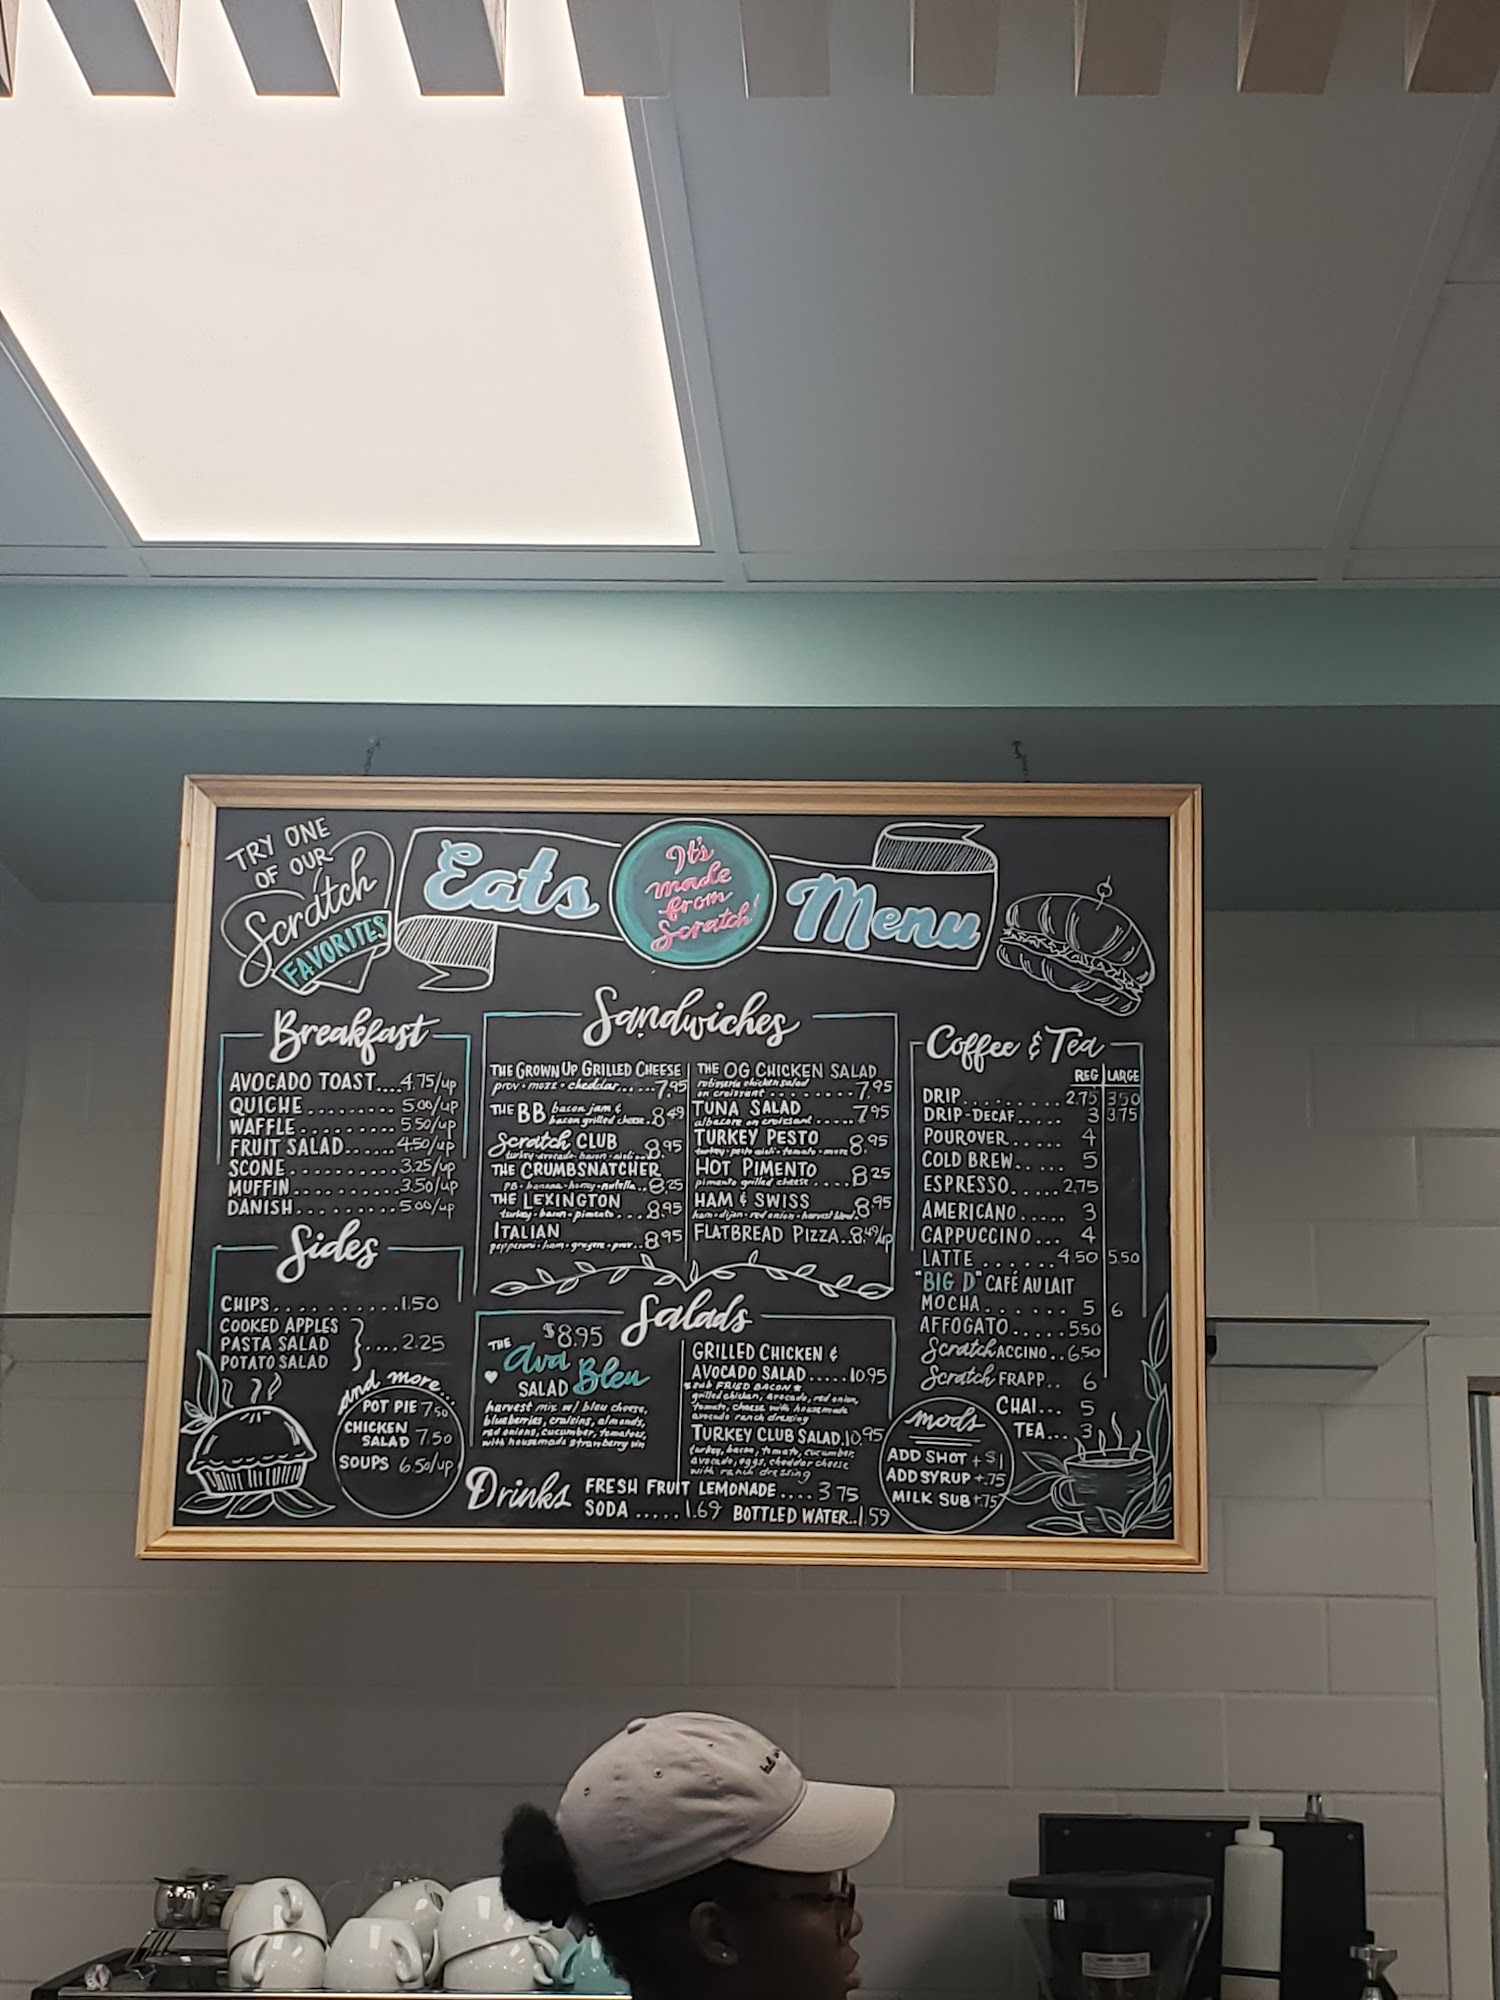 TRY ONE
OF OUR
Scratch
FAVORITES
Eats
It's
made
from
Scratch!
Menu
Breakfast
AVOCADO TOAST....4.75/up
QUICHE.........5.00/up
WAFFLE..........5.50/up
FRUIT SALAD......4.50/up
SCONE..........3.25/up
MUFFIN..........3.50/up
DANISH..........5.00/up
Sides
CHIPS..........1.50
COOKED APPLES
PASTA SALAD
POTATO SALAD
....2.25
and more...
POT PIE 7.50
CHICKEN
SALAD 7.50
SOUPS 6.50/up
Sandwiches
THE GROWN UP GRILLED CHEESE
prov • mozz • cheddar......7.95
THE BB bacon jam &
bacon grilled cheese..8.49
Scratch CLUB
turkey • avocado • bacon • aioli..8.95
THE CRUMBSNATCHER
PB • banana • honey • nutella..8.25
THE LEXINGTON
turkey • bacon • pimento....8.95
ITALIAN
pepperoni • ham • gruyere • prov..8.95
THE OG CHICKEN SALAD
rotisserie chicken salad
on croissant........7.95
TUNA SALAD
albacore on croissant.....7.95
TURKEY PESTO
turkey • pesto aioli • tomato • mozz 8.95
HOT PIMENTO
pimento grilled cheese.....8.25
HAM & SWISS
ham • dijon • red onion • harvest blend.8.95
FLATBREAD PIZZA..8.49/up
Salads
$8.95
THE
Ava
SALAD Bleu
harvest mix w/ bleu cheese,
blueberries, craisins, almonds,
red onions, cucumber, tomatoes,
with housemade strawberry vin
GRILLED CHICKEN &
AVOCADO SALAD.....10.95
FRIED BACON
grilled chicken, avocado, red onion,
tomato, cheese with housemade
avocado ranch dressing
TURKEY CLUB SALAD.10.95
turkey, bacon, tomato, cucumber,
avocado, eggs, cheddar cheese
with ranch dressing
Drinks
FRESH FRUIT LEMONADE....3.75
SODA.....1.69 BOTTLED WATER..1.59
Coffee & Tea
REG LARGE
DRIP.........2.75 3.50
DRIP-DECAF.....3 3.75
POUROVER.....4
COLD BREW......5
ESPRESSO.....2.75
AMERICANO.....3
CAPPUCCINO...4
LATTE.......4.50 5.50
"BIG D" CAFÉ AU LAIT
MOCHA.......5 6
AFFOGATO.....5.50
ScratchACCINO..6.50
Scratch FRAPP..6
CHAI...5
TEA...3
mods
ADD SHOT +$1
ADD SYRUP +.75
MILK SUB +.75